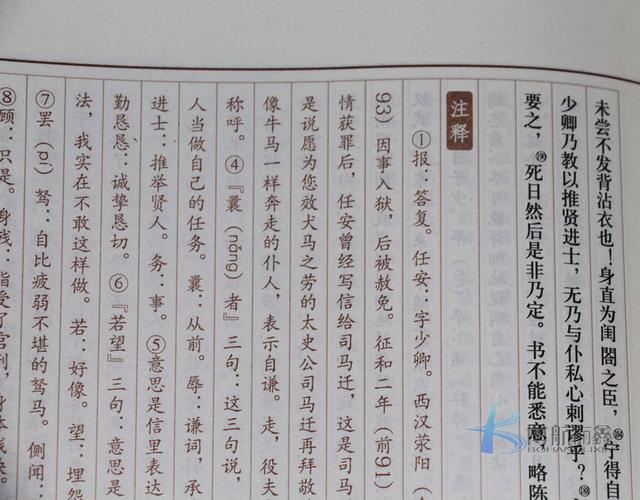 未尝不发背沾衣也！身直为闺阁之臣，⑱宁得自
少卿乃教以推贤进士，无乃与仆私心剌谬乎？
要之，死日然后是非乃定。书不能悉意，略陈
注释
①报：答复。任安：字少卿。西汉荥阳（
93）因事入狱，后被赦免。征和二年（前91）
情获罪后，任安曾经写信给司马迁，这是司马
是说愿为您放犬马之劳的太史公司马迁再拜敬
像牛马一样奔走的仆人，表示自谦。走，役夫
称呼。④『曩（nǒng）者』三句：这三句说，
人当做自己的任务。曩：从前。辱：谦词，承
进士：推举贤人。务：事。⑤意思是信里表达
勤恳恳：诚挚恳切。⑥『若望』三句：意思是
法，我实在不敢这样做。若：好像。望：埋怨
⑦罢（pí）驽：自比疲弱不堪的驽马。侧闻：
⑧顾：只是。身残：指受了宫刑，身体残缺。